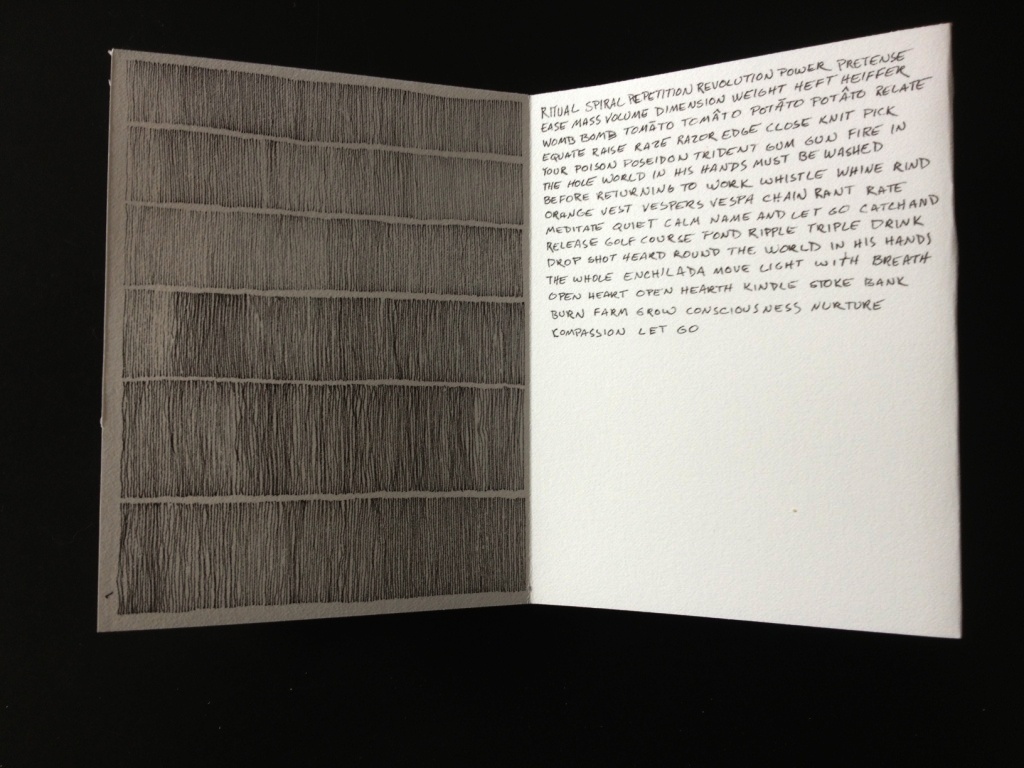 RITUAL SPIRAL REPETITION REVOLUTION POWER PRETENSE
EASE MASS VOLUME DIMENSION WEIGHT HEFT HEIFFER
WOMB BOMB TOMĀTO TOMÂTO POTĀTO POTÂTO RELATE
EQUATE RAISE RAZE RAZOR EDGE CLOSE KNIT PICK
YOUR POISON POSEIDON TRIDENT GUM GUN FIRE IN
THE HOLE WORLD IN HIS HANDS MUST BE WASHED
BEFORE RETURNING TO WORK WHISTLE WHINE RIND
ORANGE VEST VESPERS VESPA CHAIN RANT RATE
MEDITATE QUIET CALM NAME AND LET GO CATCH AND
RELEASE GOLF COURSE FOND RIPPLE TRIPLE DRINK
DROP SHOT HEARD ROUND THE WORLD IN HIS HANDS
THE WHOLE ENCHILADA MOVE LIGHT WITH BREATH
OPEN HEART OPEN HEARTH KINDLE STOKE BANK
BURN FARM GROW CONSCIOUSNESS NURTURE
KOMPASSION LET GO